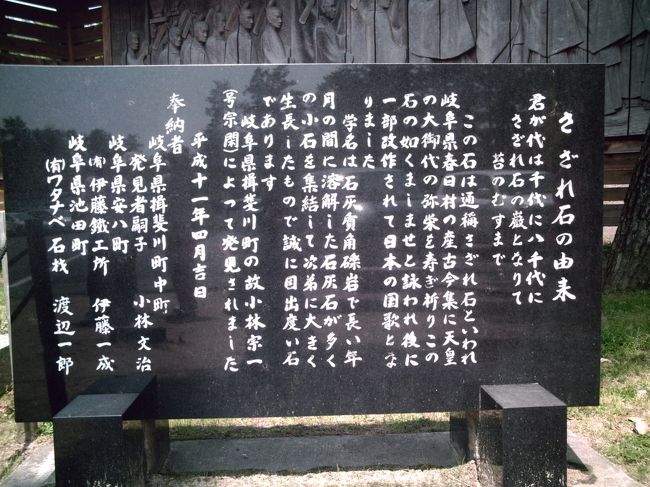 さざれ石の由来
君が代は千代に八千代に
さざれ石の巌となりて
苔のむすまで
この石は通稱さざれ石といわれ
岐阜県春日村の産古今集に天皇
の大御代の弥栄を寿ぎ祈りこの
石の如くましませと詠われ後に
一部改作されて日本の国歌とな
りました
学名は石灰質角礫岩で長い年
月の間に溶解した石灰石が多く
の小石を集結して次第に大きく
生長したもので誠に目出度い石
であります
岐阜県揖斐川町の故小林宗一
(号宗閑)によって発見されました
平成十一年四月吉日
奉納者
岐阜県揖斐川町中町
発見者嗣子 小林文治
岐阜県安八町
㈲伊藤鐵工所 伊藤一成
岐阜県池田町
㈲ワタナベ石材 渡辺一郎